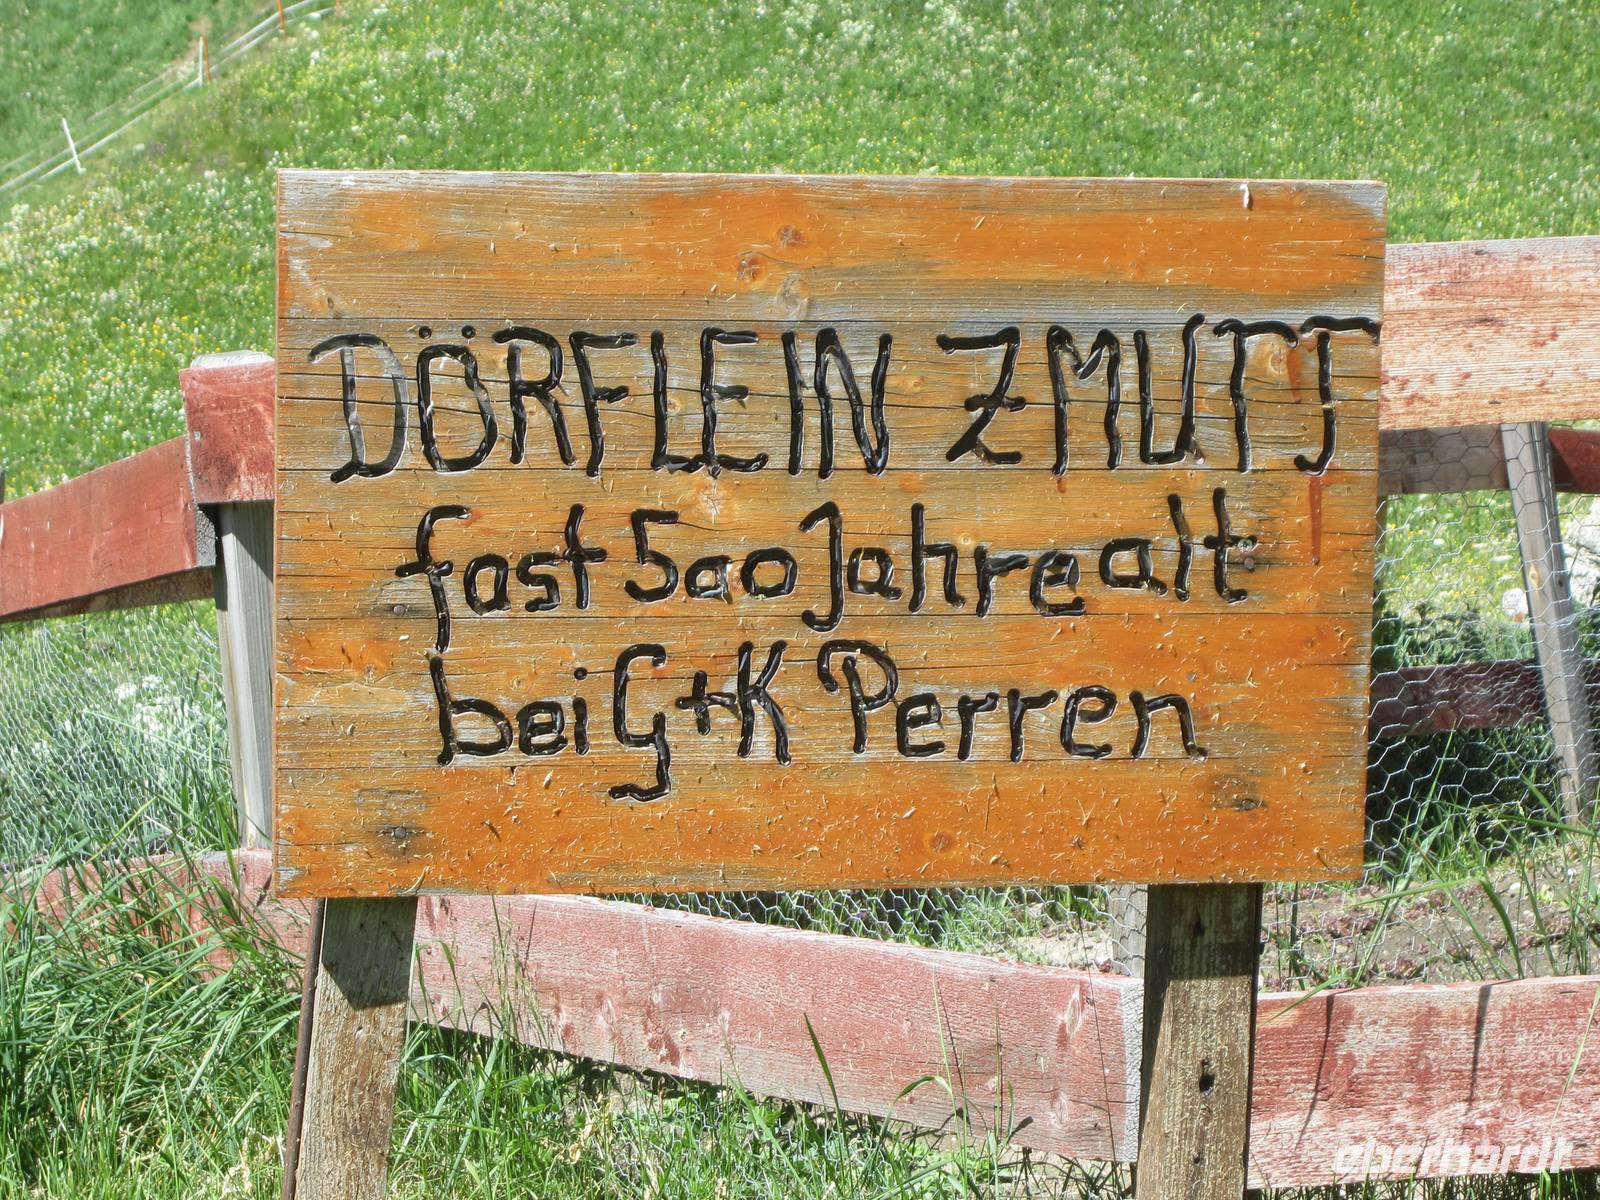 DÖRFLEIN ZMUTT
fast 500 Jahre alt
bei G+K Perren
eberhardt